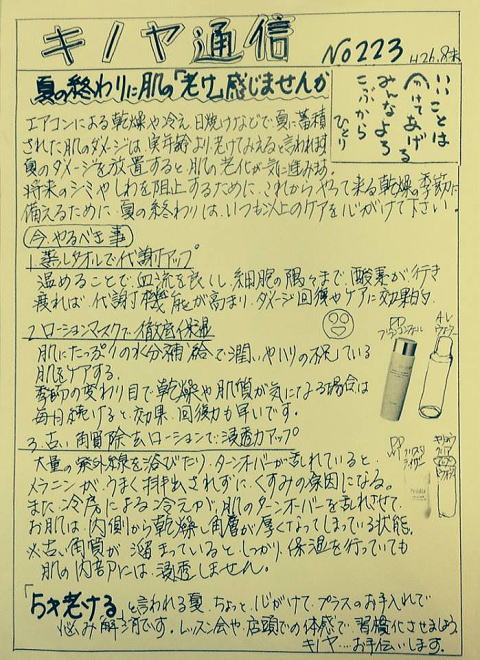 キノヤ通信
No223
H26.8末
夏の終わりに肌の「老け」感じませんか
いいことは
分けてあげる
みんなよろ
こぶから
ひとり
エアコンによる乾燥や冷え、日焼けなどで、夏に蓄積
されだ肌のダメージは、実年齢より、老けてみえると言われます
夏のダメージを放置すると、肌の老化が一気に進みます。
将来のシミやしわを阻止するために、これからやって来る乾燥の季節に
備えるために、夏の終わりは、いつも以上のケアを心がけて下さい。
今、やるべき事
1.蒸しタオルで代謝アップ
温めることで、血流を良くし、細胞の隅々まで、酸素が行き
渡れば、代謝機能が高まり、ダメージ回復やケアに効果的。
2.ローションマスクで徹底保湿
肌にたっぷりの水分補給で潤いやハリの不足している
肌をケアする。
季節の変わり目で乾燥や肌質が気になる場合は
毎日続けると、効果、回復力も早いです。
3.古い角質除去ローションで、浸透力アップ
大量の紫外線を浴びたり、ターンオーバーが乱れていると、
メラニンが、うまく排出されずに、くすみの原因になる。
また、冷房による冷えが、肌のターンオーバーを乱れさせて、
お肌は、内側から乾燥し角層が厚くなってしまっている状態。
※古い角質が、溜まっていると、しっかり、保湿を行っていても
肌の内部には、浸透しません。
「5才老ける」と言われる夏、ちょっと、心がけて、プラスのお手入れで
悩み解消です。レッスン会や店頭での体感で、習慣化させましょう
キノヤ…お伝いします。